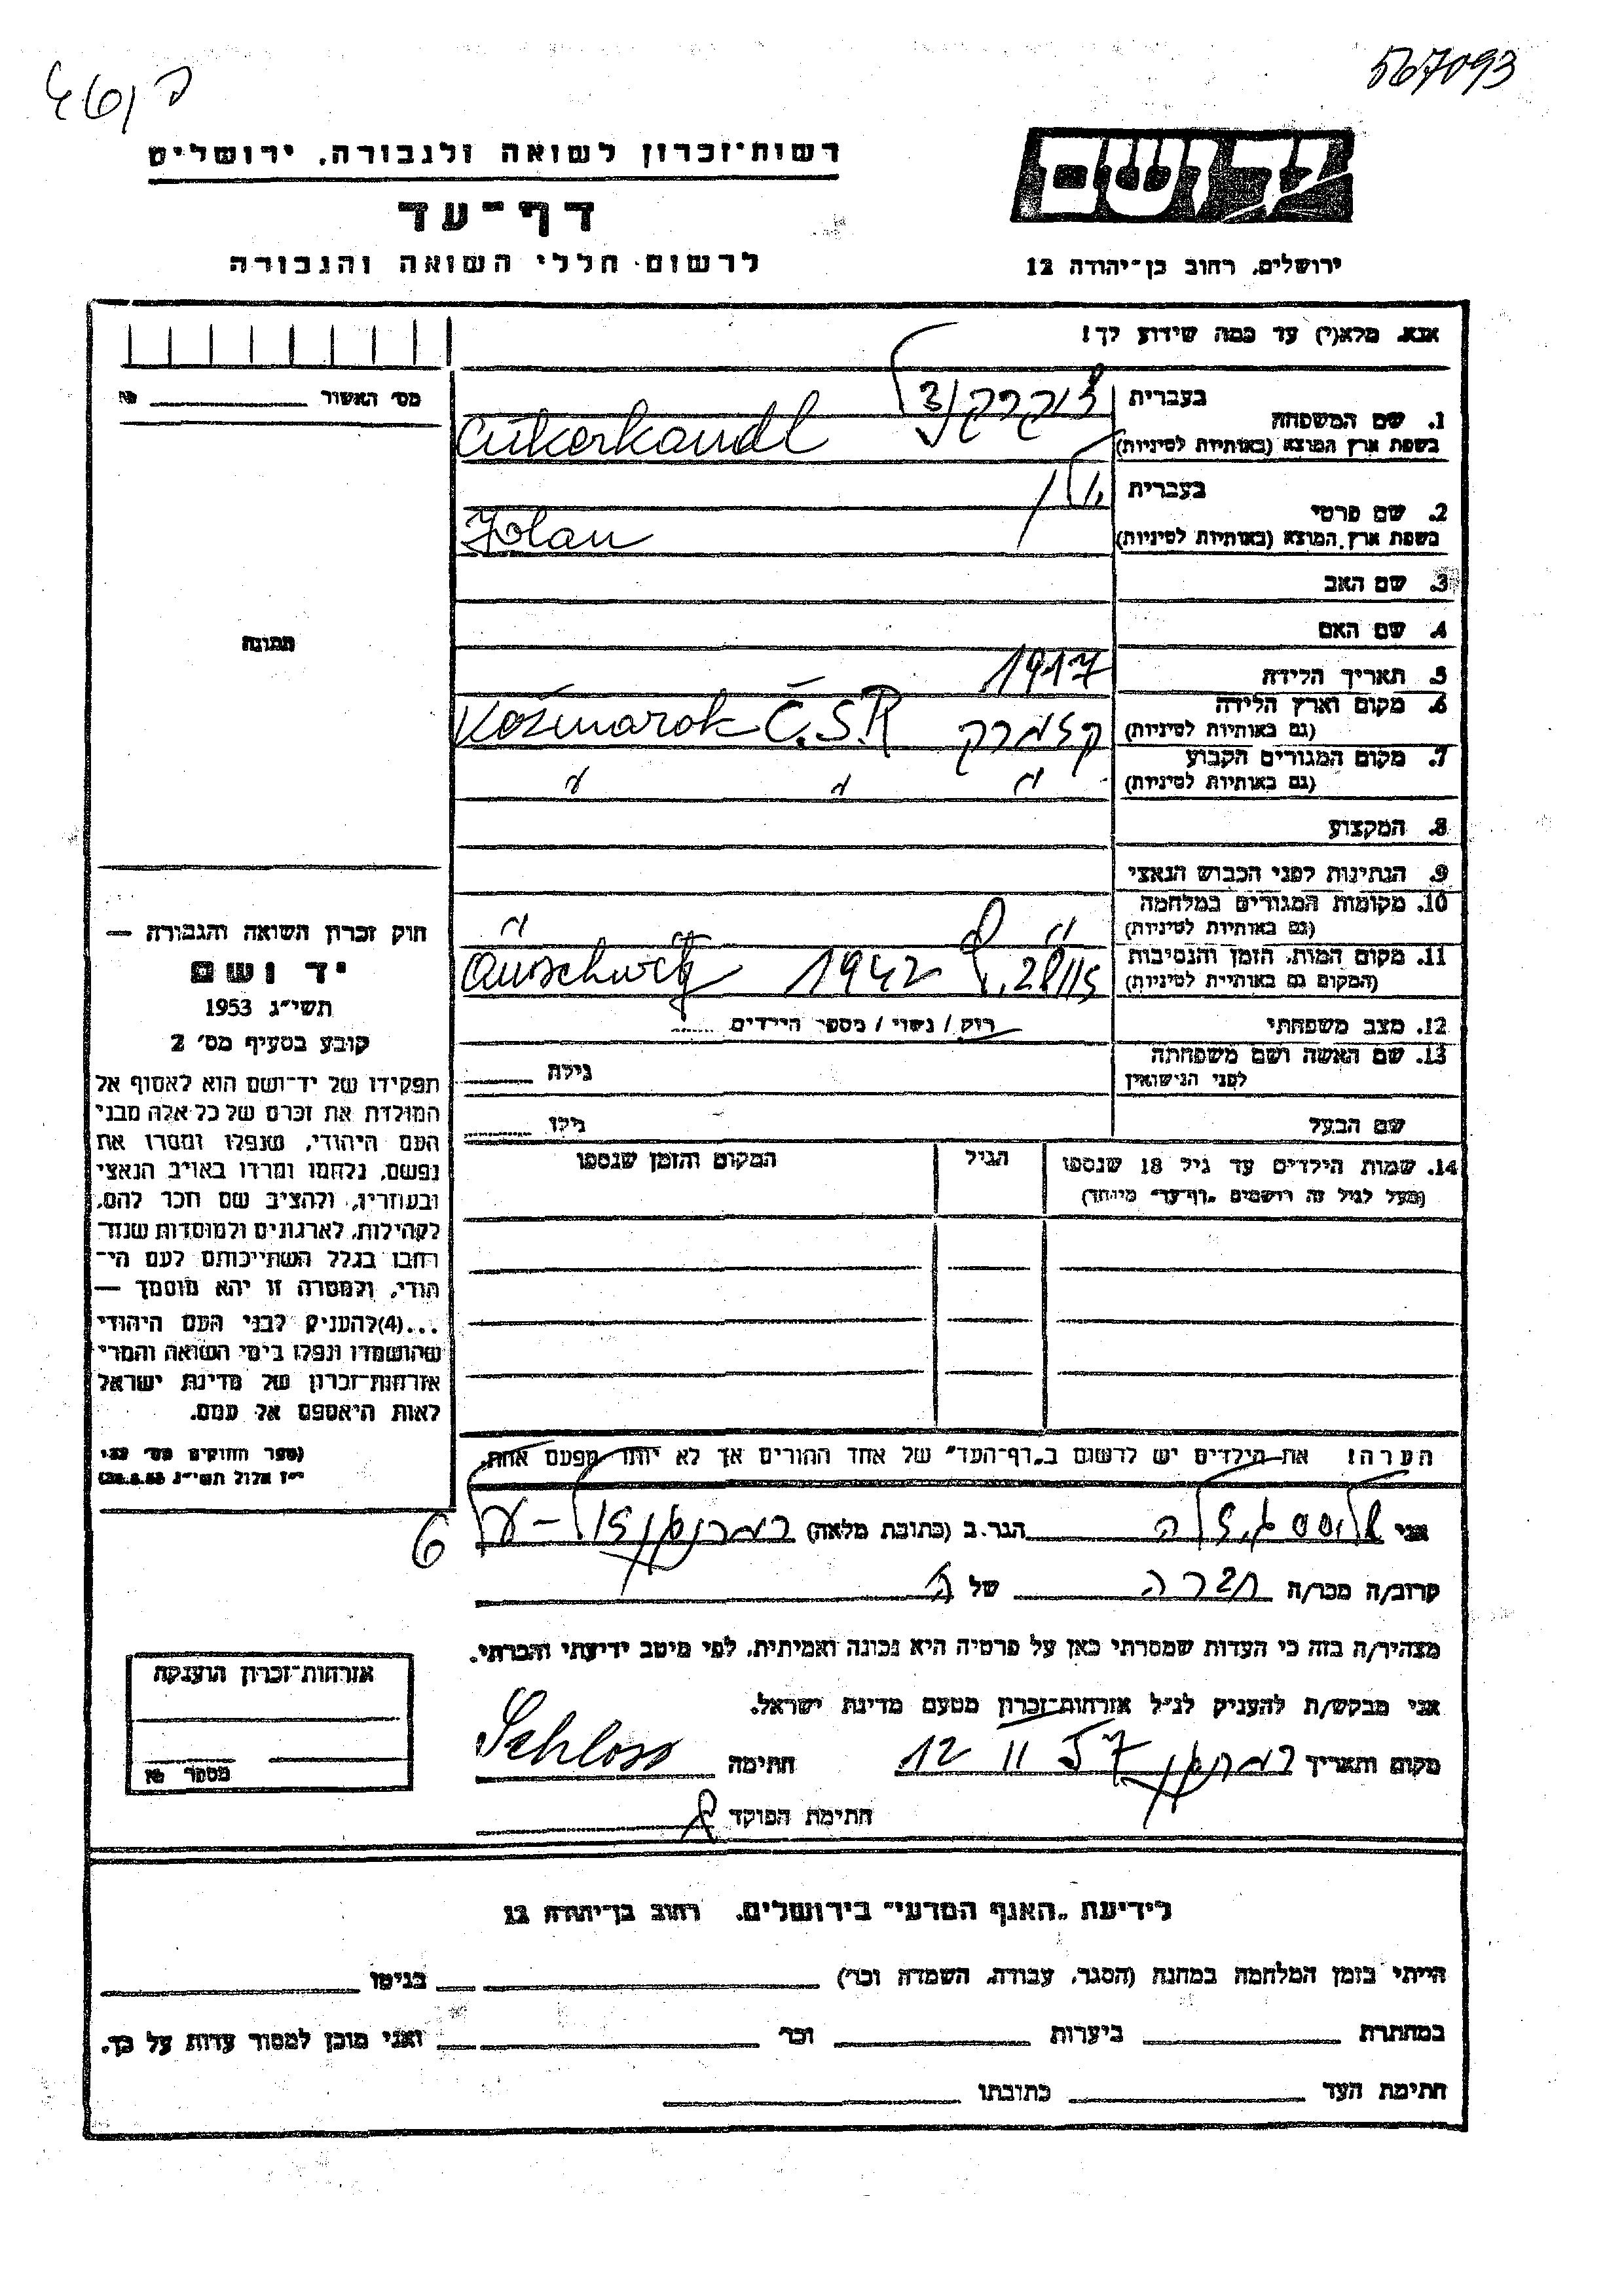 567093
יד ושם
רשות־זכרון לשואה ולגבורה. ירושלים
דף־עד
ירושלים. רחוב בן־יהודה 12
לרשום חללי השואה והגבורה
אנא. מלא(י) עד כמה שידוע לך!
מס׳ האשור № 
1. שם המשפחה
בעברית צוקרקנדל
בשפת ארץ המוצא (באותיות לטיניות) Cukerkandl
2. שם פרטי
בעברית
בשפת ארץ המוצא (באותיות לטיניות) Jolan
3. שם האב
4. שם האם
תמונה
5. תאריך הלידה 1917
6. מקום וארץ הלידה
(גם באותיות לטיניות) קזמרק Č.S.R
7. מקום המגורים הקבוע
(גם באותיות לטיניות) " " "
8. המקצוע
9. הנתינות לפני הכבוש הנאצי
10. מקומות המגורים במלחמה
(גם באותיות לטיניות) " "
11. מקום המות. הזמן והנסיבות
(המקום גם באותיות לטיניות) 1942 Auschwitz
12. מצב משפחתי רווק / נשוי / מספר הילדים
13. שם האשה ושם משפחתה
לפני הנישואין גילה
שם הבעל גילו
14. שמות הילדים עד גיל 18 שנספו הגיל המקום והזמן שנספו
(מעל לגיל זה רושמים „דף־עד” מיוחד)
חוק זכרון השואה והגבורה —
יד ושם
תשי״ג 1953
קובע בסעיף מס׳ 2
תפקידו של יד־ושם הוא לאסוף אל
המולדת את זכרם של כל אלה מבני
העם היהודי, שנפלו ומסרו את
נפשם, נלחמו ומרדו באויב הנאצי
ובעוזריו, ולהציב שם וזכר להם,
לקהילות, לארגונים ולמוסדות שנח־
רבו בגלל השתייכותם לעם הי־
הודי, ולמטרה זו יהא מוסמך —
...(4)להעניק לבני העם היהודי
שהושמדו ונפלו בימי השואה והמרי
אזרחות־זכרון של מדינת ישראל
לאות היאספם אל עמם.
(ספר החוקים מס׳ 132
י״ז אלול תשי״ג 28.8.53)
הערה! את הילדים יש לרשום ב„דף־העד” של אחד ההורים אך לא יותר מפעם אחת.
אני הגר.ב (כתובת מלאה)
6
קרוב/ה מכר/ה חברה של
מצהיר/ה בזה כי העדות שמסרתי כאן על פרטיה היא נכונה ואמיתית, לפי מיטב ידיעתי והכרתי.
אני מבקש/ת להעניק לנ״ל אזרחות־זכרון מטעם מדינת ישראל.
מקום ותאריך 12 II 57 חתימה Schloss
חתימת הפוקד
אזרחות־זכרון הוענקה
מספר №
לידיעת „האגף המדעי” בירושלים. רחוב בן־יהודה 12
הייתי בזמן המלחמה במחנה (הסגר, עבודה, השמדה וכו׳) בגיטו
במחתרת ביערות וכו׳ ואני מוכן למסור עדות על כך.
חתימת העד כתובתו